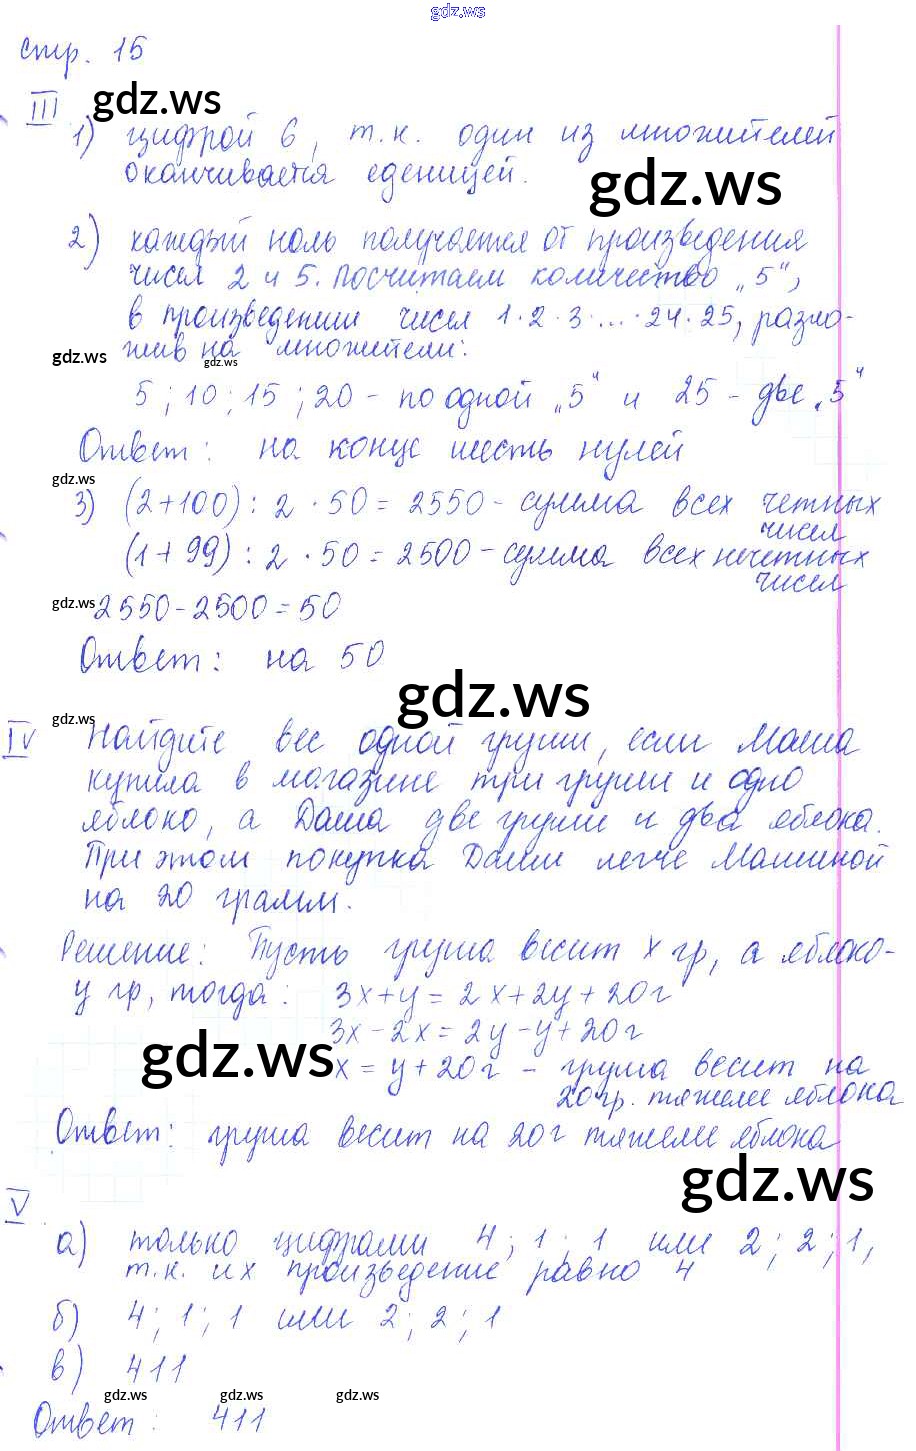 gdz.ws
стр. 15
III gdz.ws
1) цифрой 6, т.к. один из множителей
оканчивается еденицей.
gdz.ws
2) каждый ноль получается от произведения
чисел 2 и 5. Посчитаем количество „5“,
в произведении чисел 1·2·3·...·24·25, разло-
gdz.ws жив на gdz.ws множители:
5; 10; 15; 20 - по одной „5“ и 25 - две „5“
Ответ: на конце шесть нулей
gdz.ws
3) (2+100) : 2 · 50 = 2550 - сумма всех четных
чисел
(1+99) : 2 · 50 = 2500 - сумма всех нечетных
чисел
gdz.ws 2550-2500=50
Ответ: на 50
gdz.ws
gdz.ws
IV Найдите вес одной груши, если Маша
купила в магазине три груши и одно
яблоко, а Даша две груши и два яблока.
При этом покупка Даши легче Машиной
на 20 грамм.
Решение: Пусть груша весит x гр, а яблоко-
y гр, тогда: 3x+y=2x+2y+20г
3x-2x=2y-y+20г
gdz.ws
x=y+20г - груша весит на
20 гр. тяжелее яблока
Ответ: груша весит на 20г тяжелее яблока
gdz.ws
V
а) только цифрами 4; 1; 1 или 2; 2; 1,
т.к. их произведение равно 4
б) 4; 1; 1 или 2; 2; 1
в) 411
gdz.ws gdz.ws gdz.ws
Ответ: 411